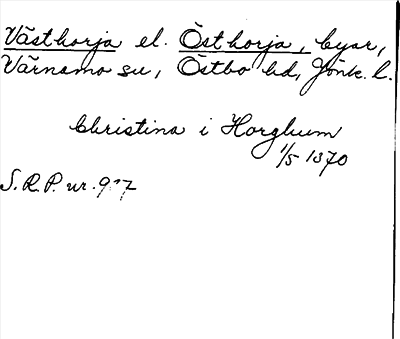 Västhorja el. Östhorja, byar,
Värnamo sn, Östbo hd, Jönk. l.
Christina i Horghum
1/5 1370
S.R.P. nr. 917